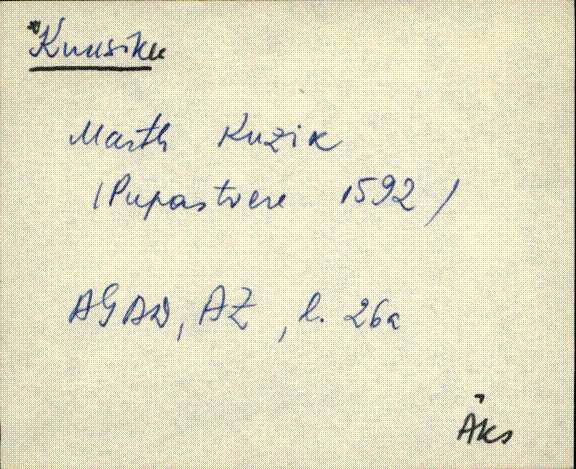 *Kuusiku
Marth Kuzik
(Pupastvere 1592)
AGAD, AZ, l. 26a
Äks